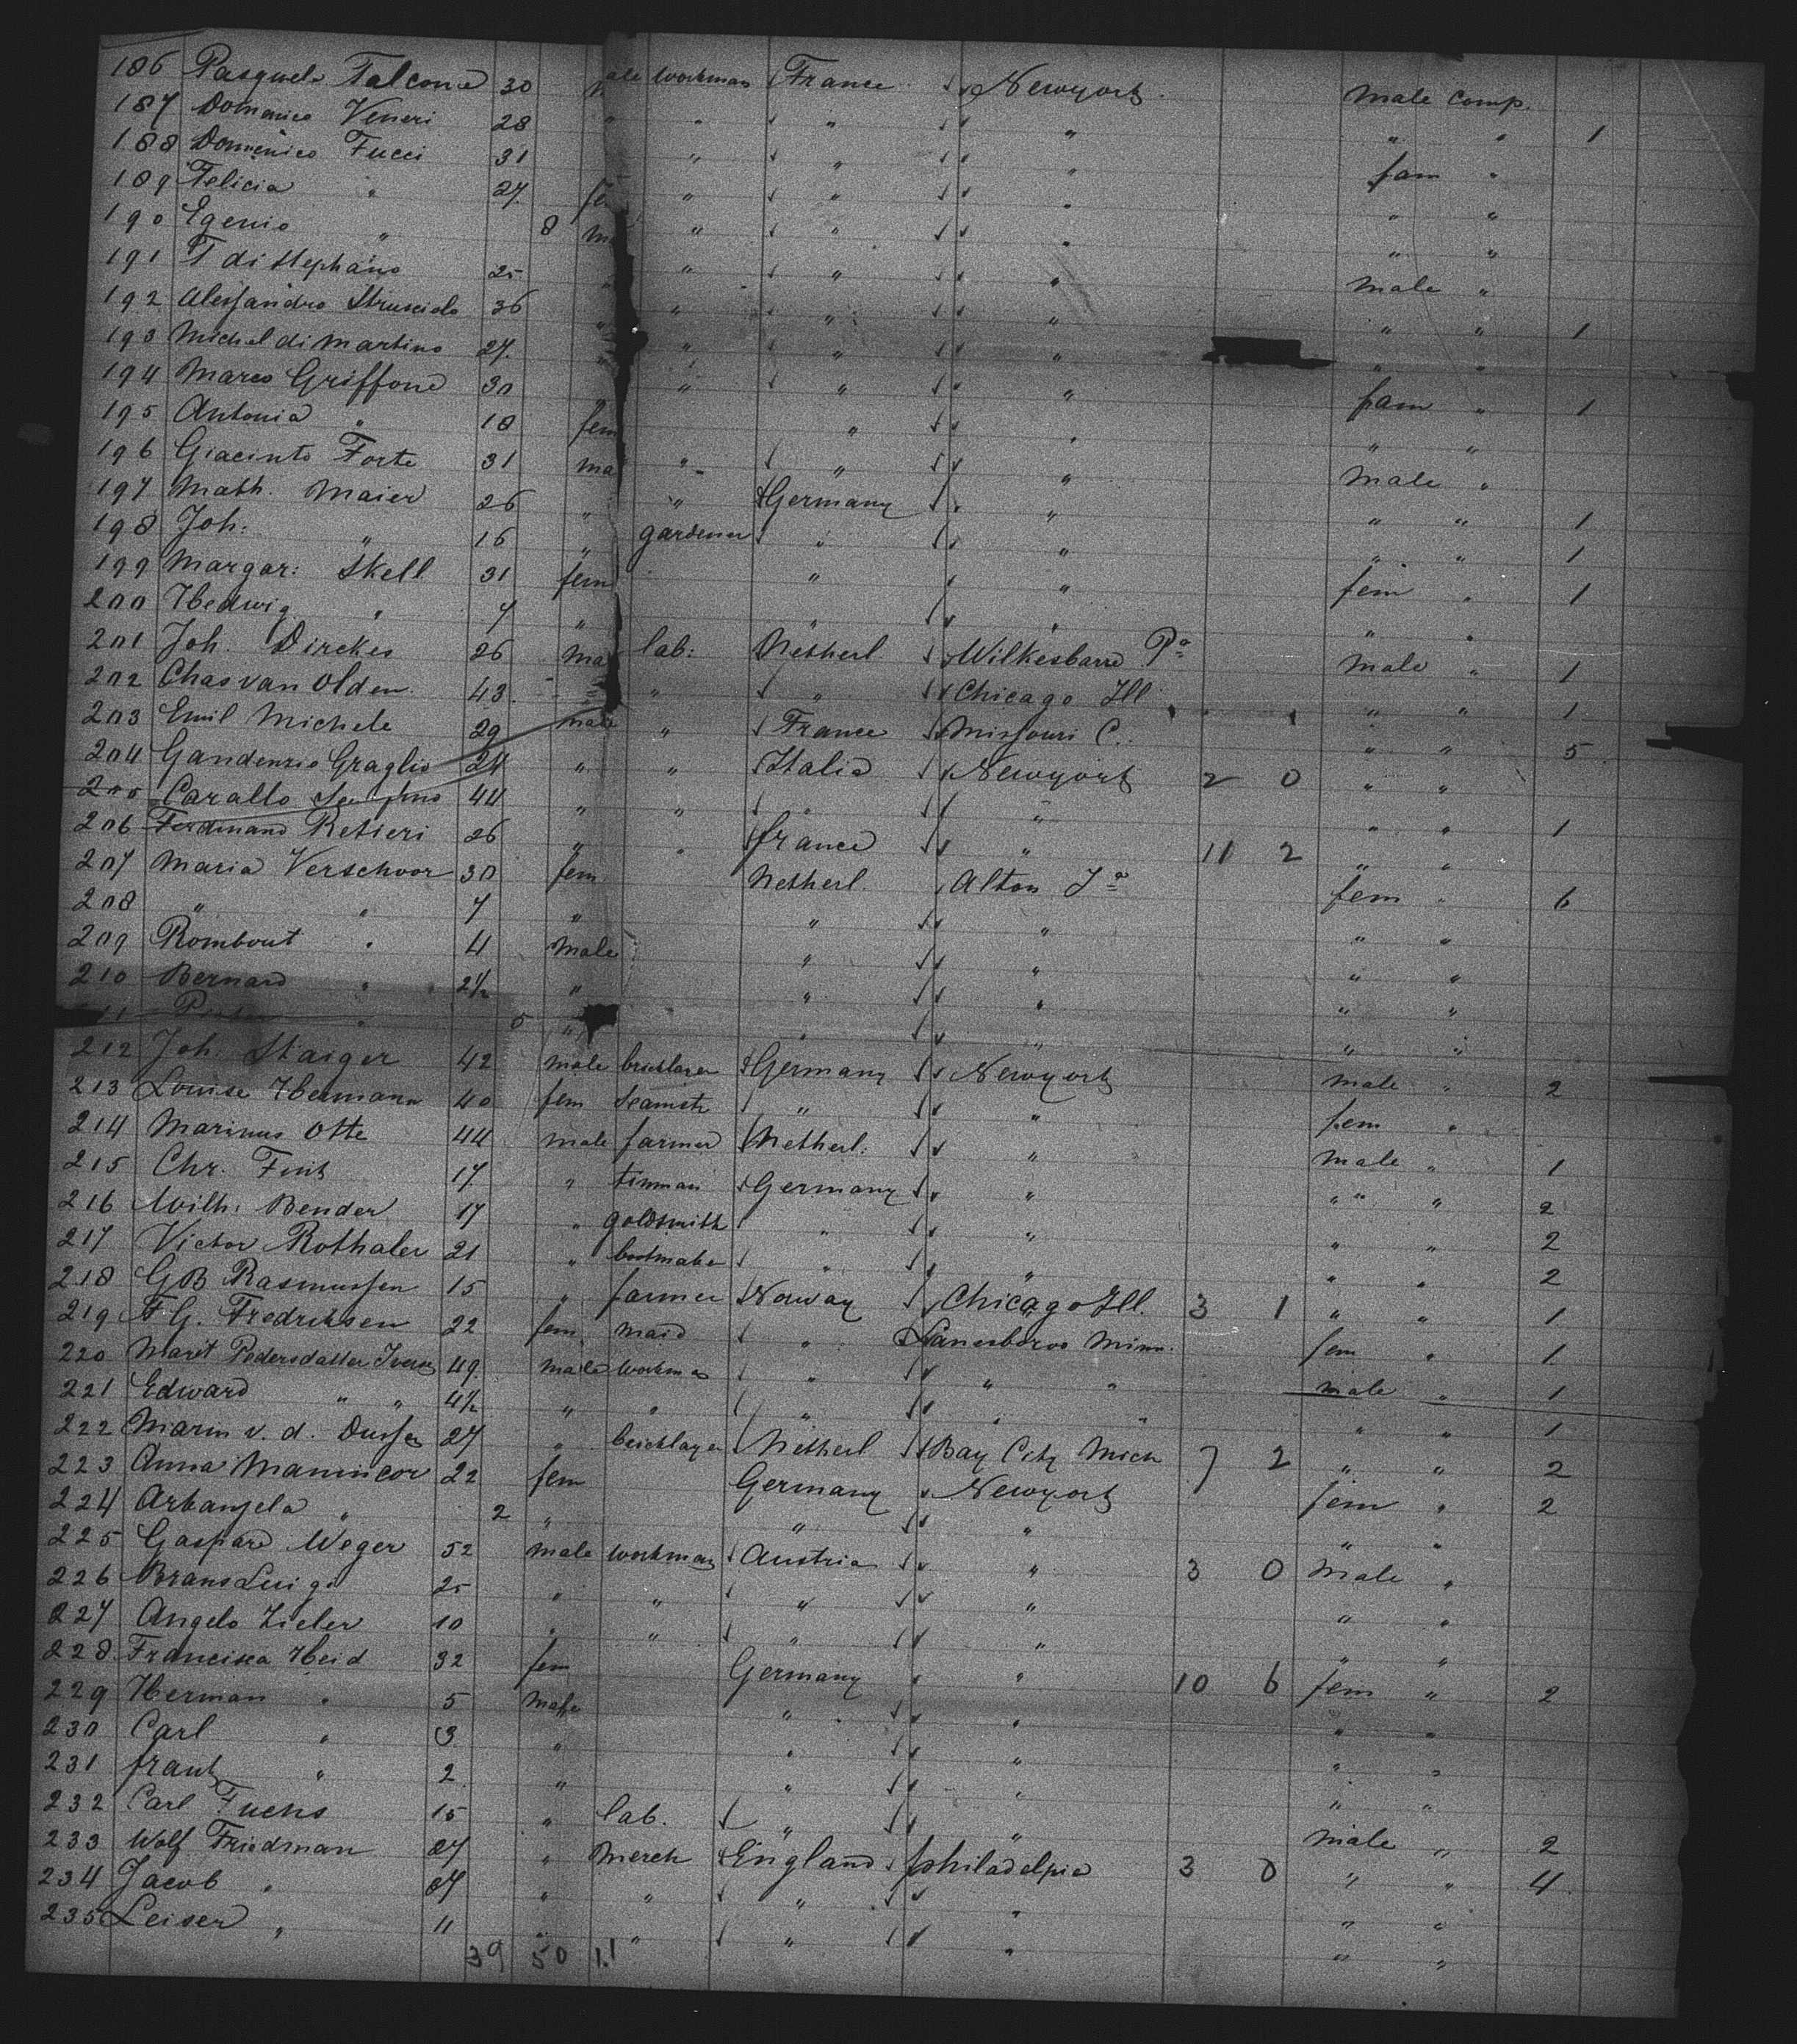 186 Pasquale Falcone 30 male workman France Newyork male comp.
187 Domenico Veneri 28 " " " " " " 1
188 Domenico Fucci 31 " " " fam "
189 Felicia " 27 fem " " " " "
190 Egenio " 8 ma " " " " "
191 T di Stephano 25 " " " " male "
192 Alessandro Strusciolo 36 " " " " " " 1
193 Michel di Martino 27 " " " " " "
194 Marco Griffone 30 " " " fam " 1
195 Antonia " 18 fem " " " "
196 Giacinto Forte 31 ma " " " male "
197 Math. Maier 26 " " Germany " " " 1
198 Joh: " 16 " gardener " " " " 1
199 Margar: Skell 31 fem " " fem " 1
200 Hedwig " 7 " " " " "
201 Joh. Dirckes 26 ma lab: Netherl Wilkesbarre Pa male " 1
202 Chas van Olden 43 " " " Chicago Ill " " 1
203 Emil Michele 29 male " France Missouri C. " " 5
204 Gandenzio Graglio 24 " " Italia Newyork 2 0 " "
205 Carallo 44 " " " " " " 1
206 Ferdinand Retieri 26 " " france " 11 2 " "
207 Maria Verschoor 30 fem Netherl. Alton Ia fem " 6
208 " " 7 " " " " "
209 Rombout " 4 male " " " "
210 Bernard " 2½ " " " " "
11 " 5 " " " " "
212 Joh. Staiger 42 male bricklayer Germany Newyork male " 2
213 Louise Hermann 40 fem seamstr " " fem "
214 Marinus Otte 44 male farmer Netherl: " male " 1
215 Chr. 17 " tinman Germany " " " 2
216 Wilh. Bender 17 " goldsmith " " " " 2
217 Victor Rothaler 21 " bootmaker " " " " 2
218 GB Rasmussen 15 " farmer Norway Chicago Ill. 3 1 " " 1
219 A G. Fredriksen 22 fem maid " Lanesboroo Minn. fem " 1
220 Marit Pedersdatter 49 male workman " " " male " 1
221 Edward " " 4½ " " " " " " " 1
222 Marin v. d. 27 " bricklayer Netherl Bay City Mich 7 2 " " 2
223 Anna Manincor 22 fem Germany Newyork fem " 2
224 Arkanjela " 2 " " " " "
225 Gaspard Weger 52 male workman Austria " 3 0 male "
226 Brans Luigi 25 " " " " " "
227 Angelo Zieler 10 " " " " " "
228 Francisca Heid 32 fem Germany " 10 6 fem " 2
229 Herman " 5 male " " " "
230 Carl " 3 " " " " "
231 frantz " 2 " " " " "
232 Carl Fuchs 15 " lab. " " male " 2
233 Wolf Friedman 27 " Merch England philadelpia 3 0 " " 4
234 Jacob " " " " " " "
235 Leiser " 11 " " " " " "
39 50 11